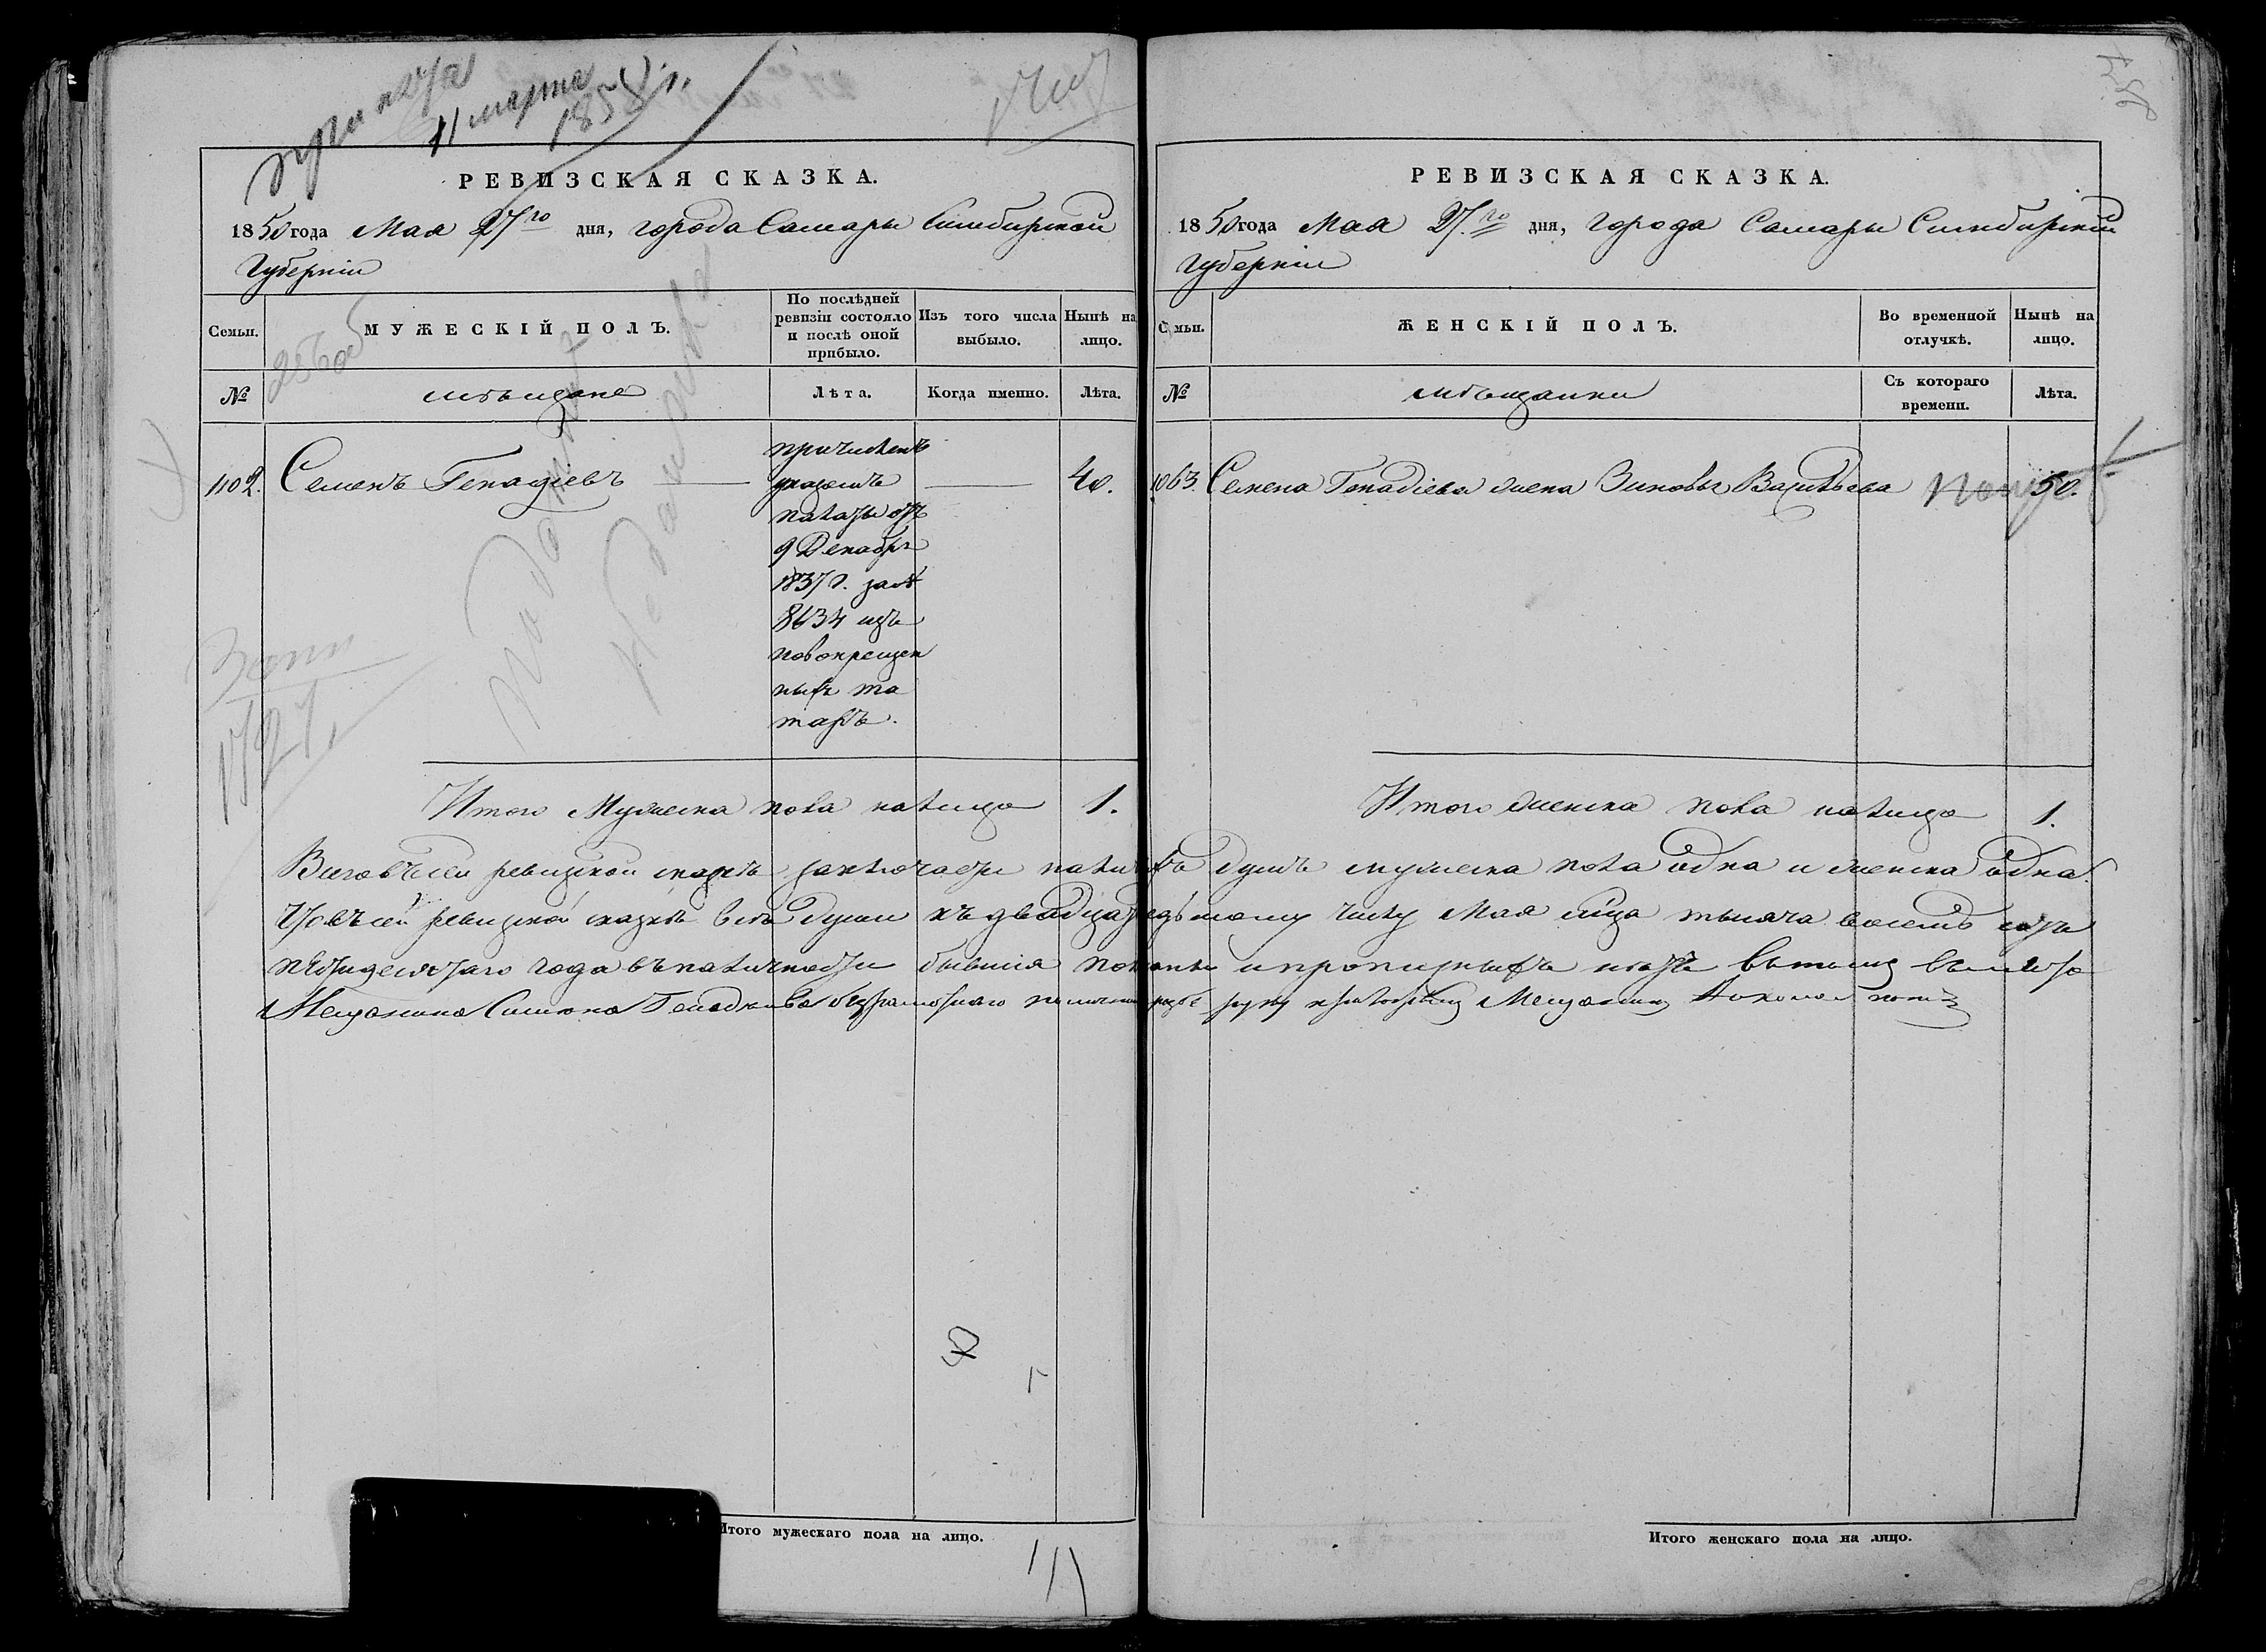 11 марта
1858 г.
РЕВИЗСКАЯ СКАЗКА.
1850 года Мая 27го дня, города Самары Симбирской
Губерніи
Семьи.
МУЖЕСКІЙ ПОЛЪ.
По послѣдней
ревизіи состояло
и послѣ оной
прибыло.
Изъ того числа
выбыло.
Нынѣ на
лицо.
№
мѣщане
Лѣта.
Когда именно.
Лѣта.
1102.
Семенъ Генадіевъ
причисленъ
указомъ
палаты отъ
9 Декабря
1837 г. за №
8634 изъ
новокрещен
ныхъ та
таръ.
40.
Итого Мужеска пола налицо 1.
Итого мужескаго пола на лицо.
РЕВИЗСКАЯ СКАЗКА.
1850 года Мая 27.го дня, города Самары Симбирской
Губерніи
Семьи.
ЖЕНСКІЙ ПОЛЪ.
Во временной
отлучкѣ.
Нынѣ на
лицо.
№
мѣщанки
Съ котораго
времени.
Лѣта.
1063.
Семена Генадіева жена Зиновья Васильева
50.
Итого женска пола налицо 1.
Всего въ сей ревизской сказкѣ заключается налицо душъ мужеска пола одна и женска одна.
Что въ сей ревизской сказкѣ всѣ души къ двадцать седьмому числу Мая мца тысяча восемь сотъ
пятидесятаго года въ наличности бывшія показаны и прописныхъ нѣтъ въ томъ
Мещанина Семена Генадьева безграмотнаго по личной прозбе руку приложилъ Мещанинъ
Итого женскаго пола на лицо.